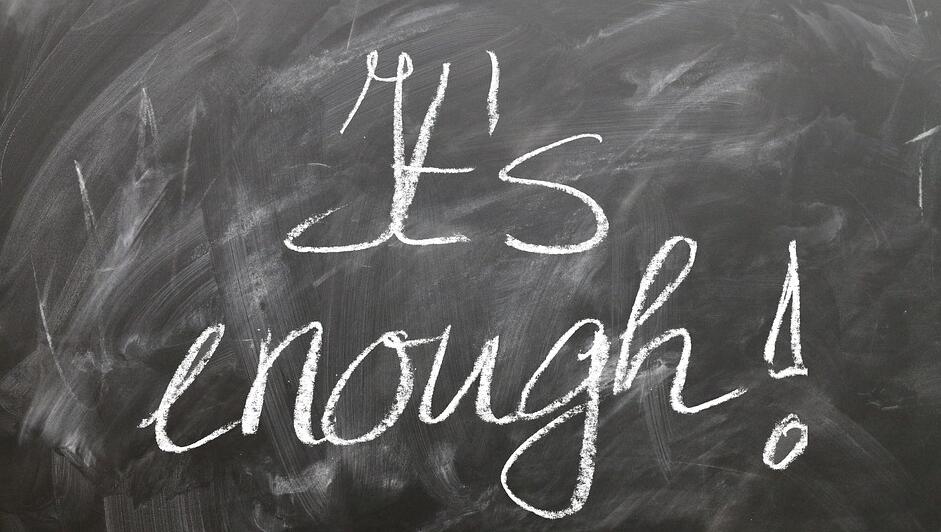 It's
enough!